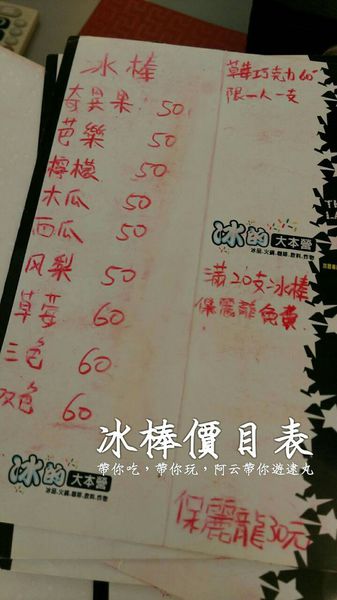 冰棒
奇異果 50
芭樂 50
檸檬 50
木瓜 50
西瓜 50
凤梨 50
草莓 60
三色 60
双色 60
冰的大本營
冰品.火鍋.咖啡.飲料.炸物
草莓巧克力60
限一人一支
冰的大本營
冰品.火鍋.咖啡.飲料.炸物
滿20支冰棒
保麗龍免費
保麗龍30元
冰棒價目表
帶你吃，帶你玩，阿云帶你遊速丸